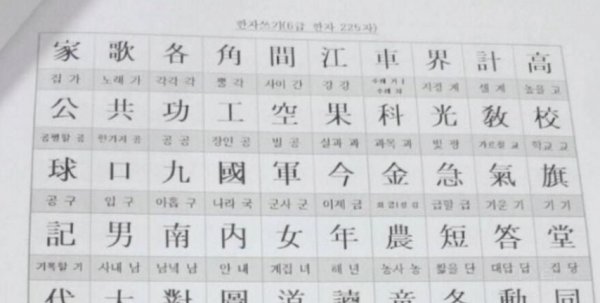 한자쓰기(6급 한자 225자)
家 歌 各 角 間 江 車 界 計 高
집 가 노래 가 각각 각 뿔 각 사이 간 강 강 수레 거 수레 차 지경 계 셀 계 높을 고
公 共 功 工 空 果 科 光 敎 校
공평할 공 한가지 공 공 공 장인 공 빌 공 실과 과 과목 과 빛 광 가르칠 교 학교 교
球 口 九 國 軍 今 金 急 氣 旗
공 구 입 구 아홉 구 나라 국 군사 군 이제 금 급할 급 기운 기 기 기
記 男 南 內 女 年 農 短 答 堂
기록할 기 사내 남 남녘 남 안 내 계집 녀 해 년 농사 농 짧을 단 대답 답 집 당
代 大 對 圖 道 讀 音 各 動 同